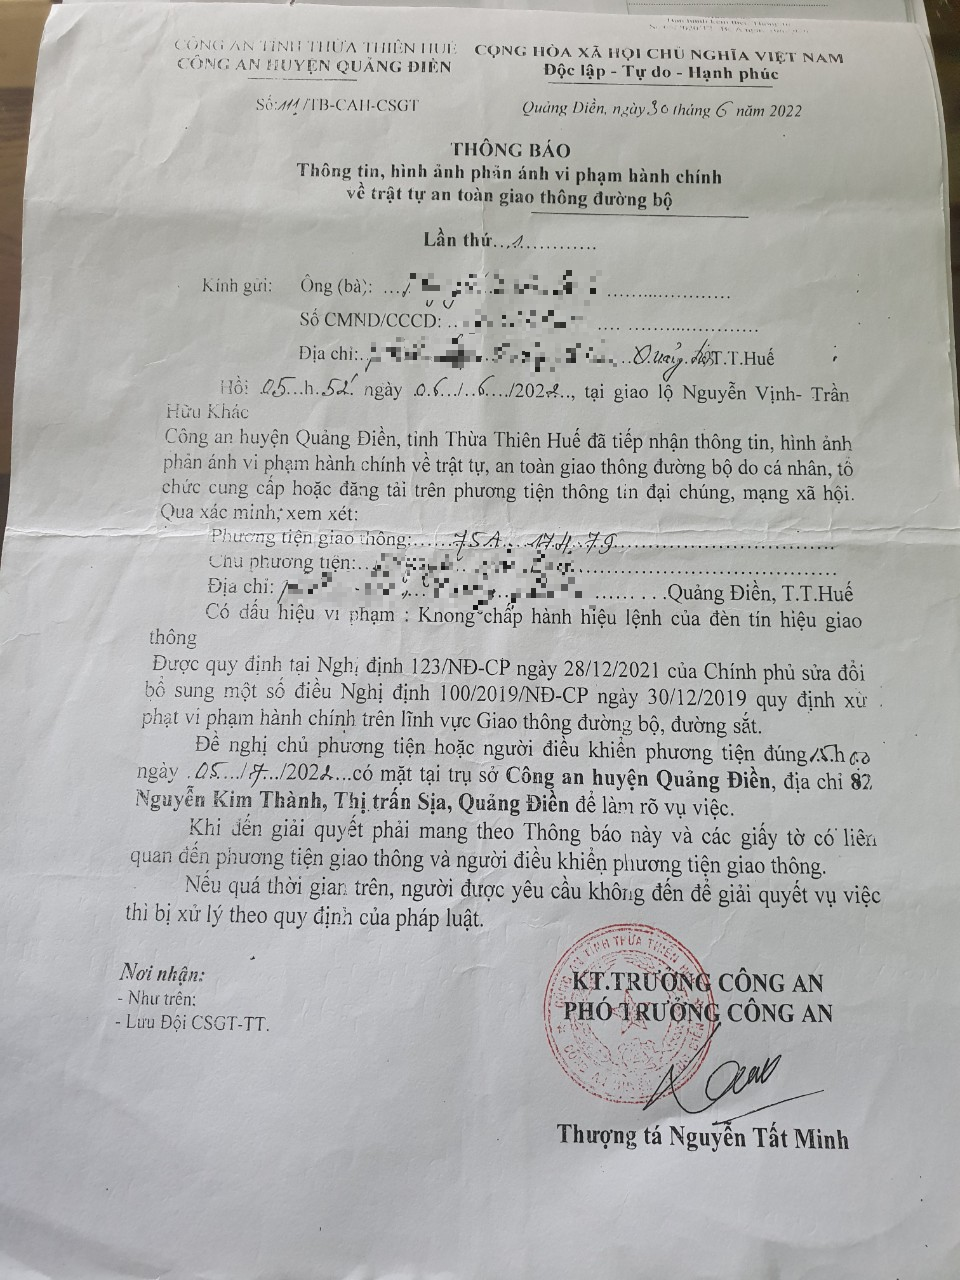 CÔNG AN TỈNH THỪA THIÊN HUẾ
CÔNG AN HUYỆN QUẢNG ĐIỀN
CỘNG HÒA XÃ HỘI CHỦ NGHĨA VIỆT NAM
Độc lập - Tự do - Hạnh phúc
Số:111/TB-CAH-CSGT
Quảng Điền, ngày 30 tháng 6 năm 2022
THÔNG BÁO
Thông tin, hình ảnh phản ánh vi phạm hành chính
về trật tự an toàn giao thông đường bộ
Lần thứ...1............
Kính gửi: Ông (bà):
Số CMND/CCCD:
Địa chỉ: Quảng Điền, T.T.Huế
Hồi .05...h.52' ngày .0.6../..6.../2022.., tại giao lộ Nguyễn Vịnh- Trần
Hữu Khác
Công an huyện Quảng Điền, tỉnh Thừa Thiên Huế đã tiếp nhận thông tin, hình ảnh
phản ánh vi phạm hành chính về trật tự, an toàn giao thông đường bộ do cá nhân, tổ
chức cung cấp hoặc đăng tải trên phương tiện thông tin đại chúng, mạng xã hội.
Qua xác minh, xem xét:
Phương tiện giao thông:......75A...174.79
Chủ phương tiện:
Địa chỉ: Quảng Điền, T.T.Huế
Có dấu hiệu vi phạm : Không chấp hành hiệu lệnh của đèn tín hiệu giao
thông
Được quy định tại Nghị định 123/NĐ-CP ngày 28/12/2021 của Chính phủ sửa đổi
bổ sung một số điều Nghị định 100/2019/NĐ-CP ngày 30/12/2019 quy định xử
phạt vi phạm hành chính trên lĩnh vực Giao thông đường bộ, đường sắt.
Đề nghị chủ phương tiện hoặc người điều khiển phương tiện đúng 15h00
ngày .05.../7.../2022...có mặt tại trụ sở Công an huyện Quảng Điền, địa chỉ 82
Nguyễn Kim Thành, Thị trấn Sịa, Quảng Điền để làm rõ vụ việc.
Khi đến giải quyết phải mang theo Thông báo này và các giấy tờ có liên
quan đến phương tiện giao thông và người điều khiển phương tiện giao thông.
Nếu quá thời gian trên, người được yêu cầu không đến để giải quyết vụ việc
thì bị xử lý theo quy định của pháp luật.
Nơi nhận:
- Như trên;
- Lưu Đội CSGT-TT.
KT.TRƯỞNG CÔNG AN
PHÓ TRƯỞNG CÔNG AN
Thượng tá Nguyễn Tất Minh